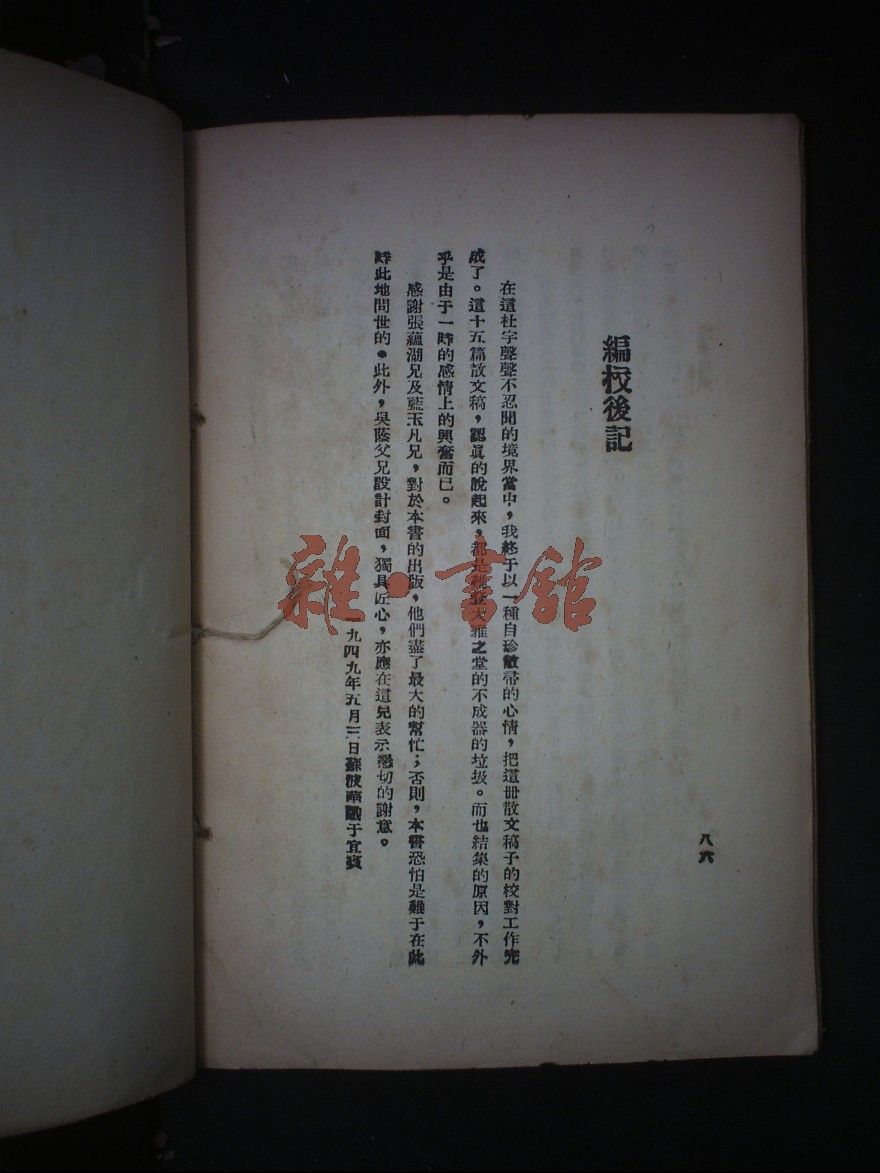 八六
編校後記
在這杜宇聲聲不忍聞的境界當中，我終于以一種自珍敝帚的心情，把這冊散文稿子的校對工作完
成了。這十五篇散文稿，認眞的說起來，都是大雅之堂的不成器的垃圾。而也結集的原因，不外
乎是由于一時的感情上的興奮而已。
感謝張蘊湖兄及藍玉凡兄，對於本書的出版，他們盡了最大的幫忙；否則，本書恐怕是難于在此
時此地問世的。此外，吳蔭父兄設計封面，獨具匠心，亦應在這兒表示懇切的謝意。
一九四九年五月三日蘇波于宜賓
雜·書館